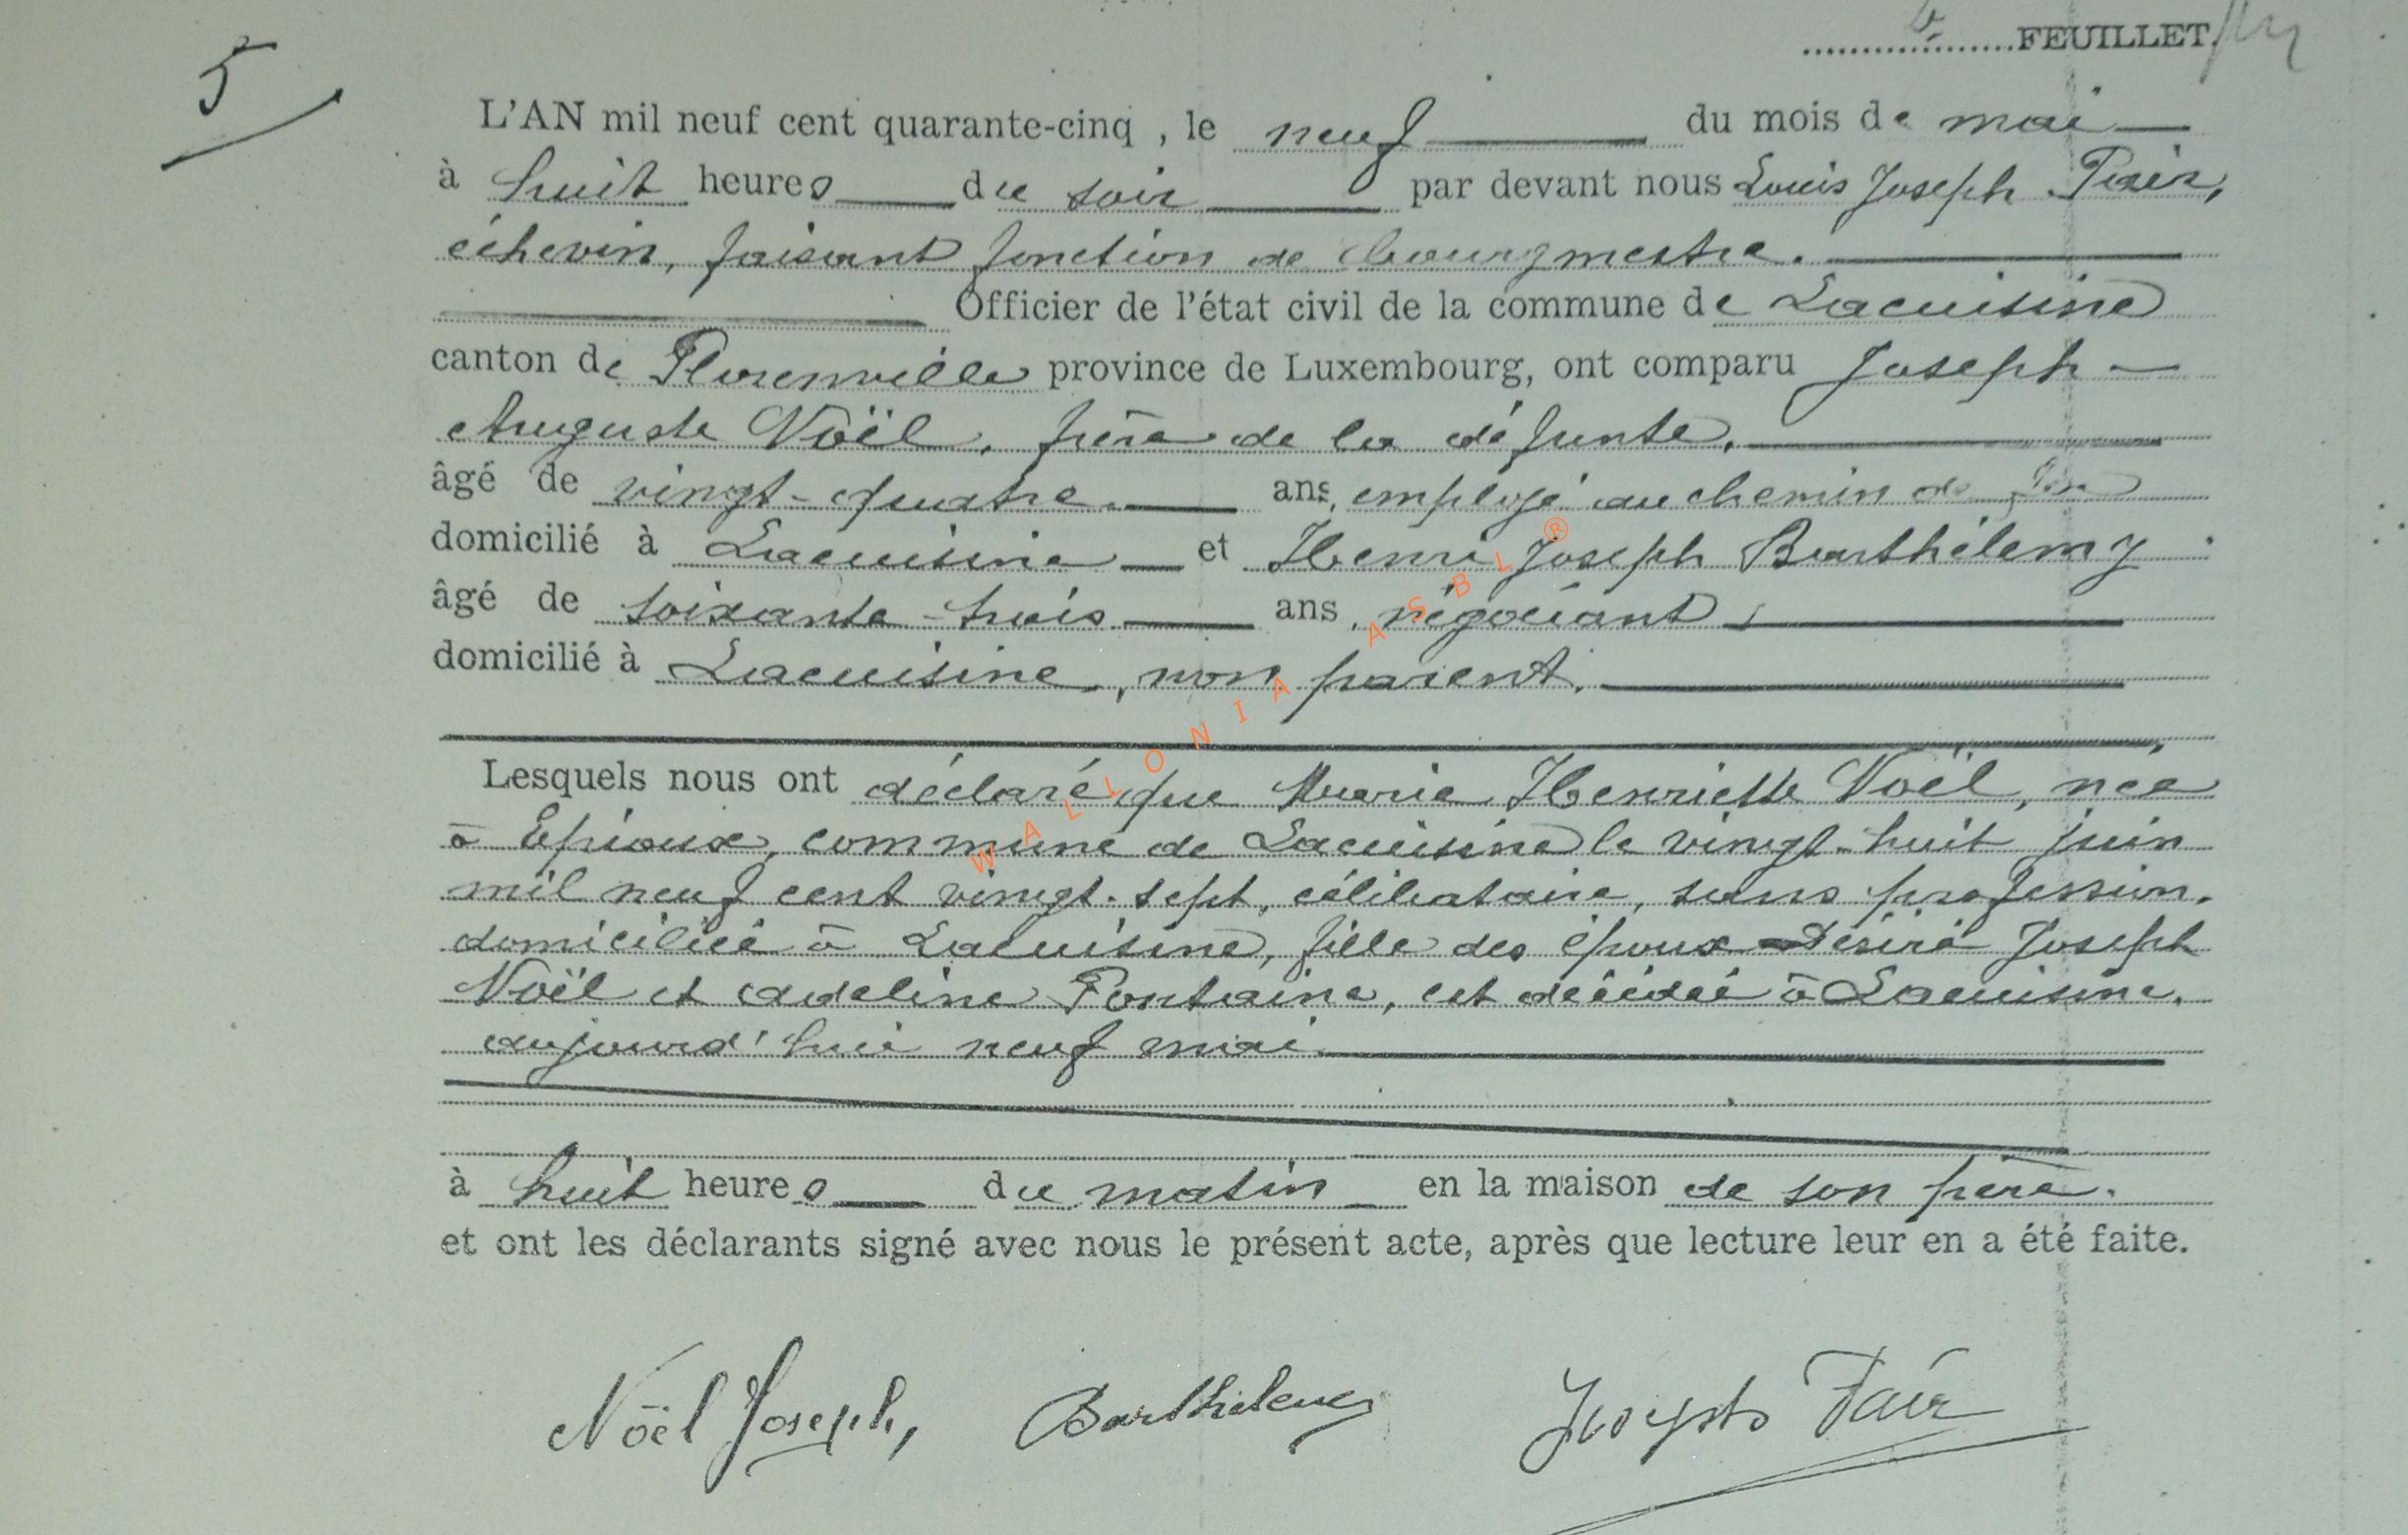 5
FEUILLET.
L'AN mil neuf cent quarante-cinq , le neuf du mois de mai
à huit heures du soir par devant nous Louis Joseph
échevin, faisant fonction de bourgmestre.
Officier de l'état civil de la commune de Lacuisine
canton de Florenville province de Luxembourg, ont comparu Joseph -
Auguste Noël, frère de la défunte,
âgé de vingt-quatre ans, employé au chemin de fer
domicilié à Lacuisine et Henri Joseph Barthélemy
âgé de soixante-trois ans, négociant,
domicilié à Lacuisine, non parent.
Lesquels nous ont déclaré que Marie Henriette Noël, née
à Epioux, commune de Lacuisine le vingt-huit juin
mil neuf cent vingt-sept, célibataire, sans profession,
domiciliée à Lacuisine, fille des époux Désiré Joseph
Noël et Adeline Fontaine, est décédée à Lacuisine,
aujourd'hui neuf mai
à huit heures du matin en la maison de son père.
et ont les déclarants signé avec nous le présent acte, après que lecture leur en a été faite.
Noël Joseph, Barthélemy Joseph
WALLONIA ASBL®